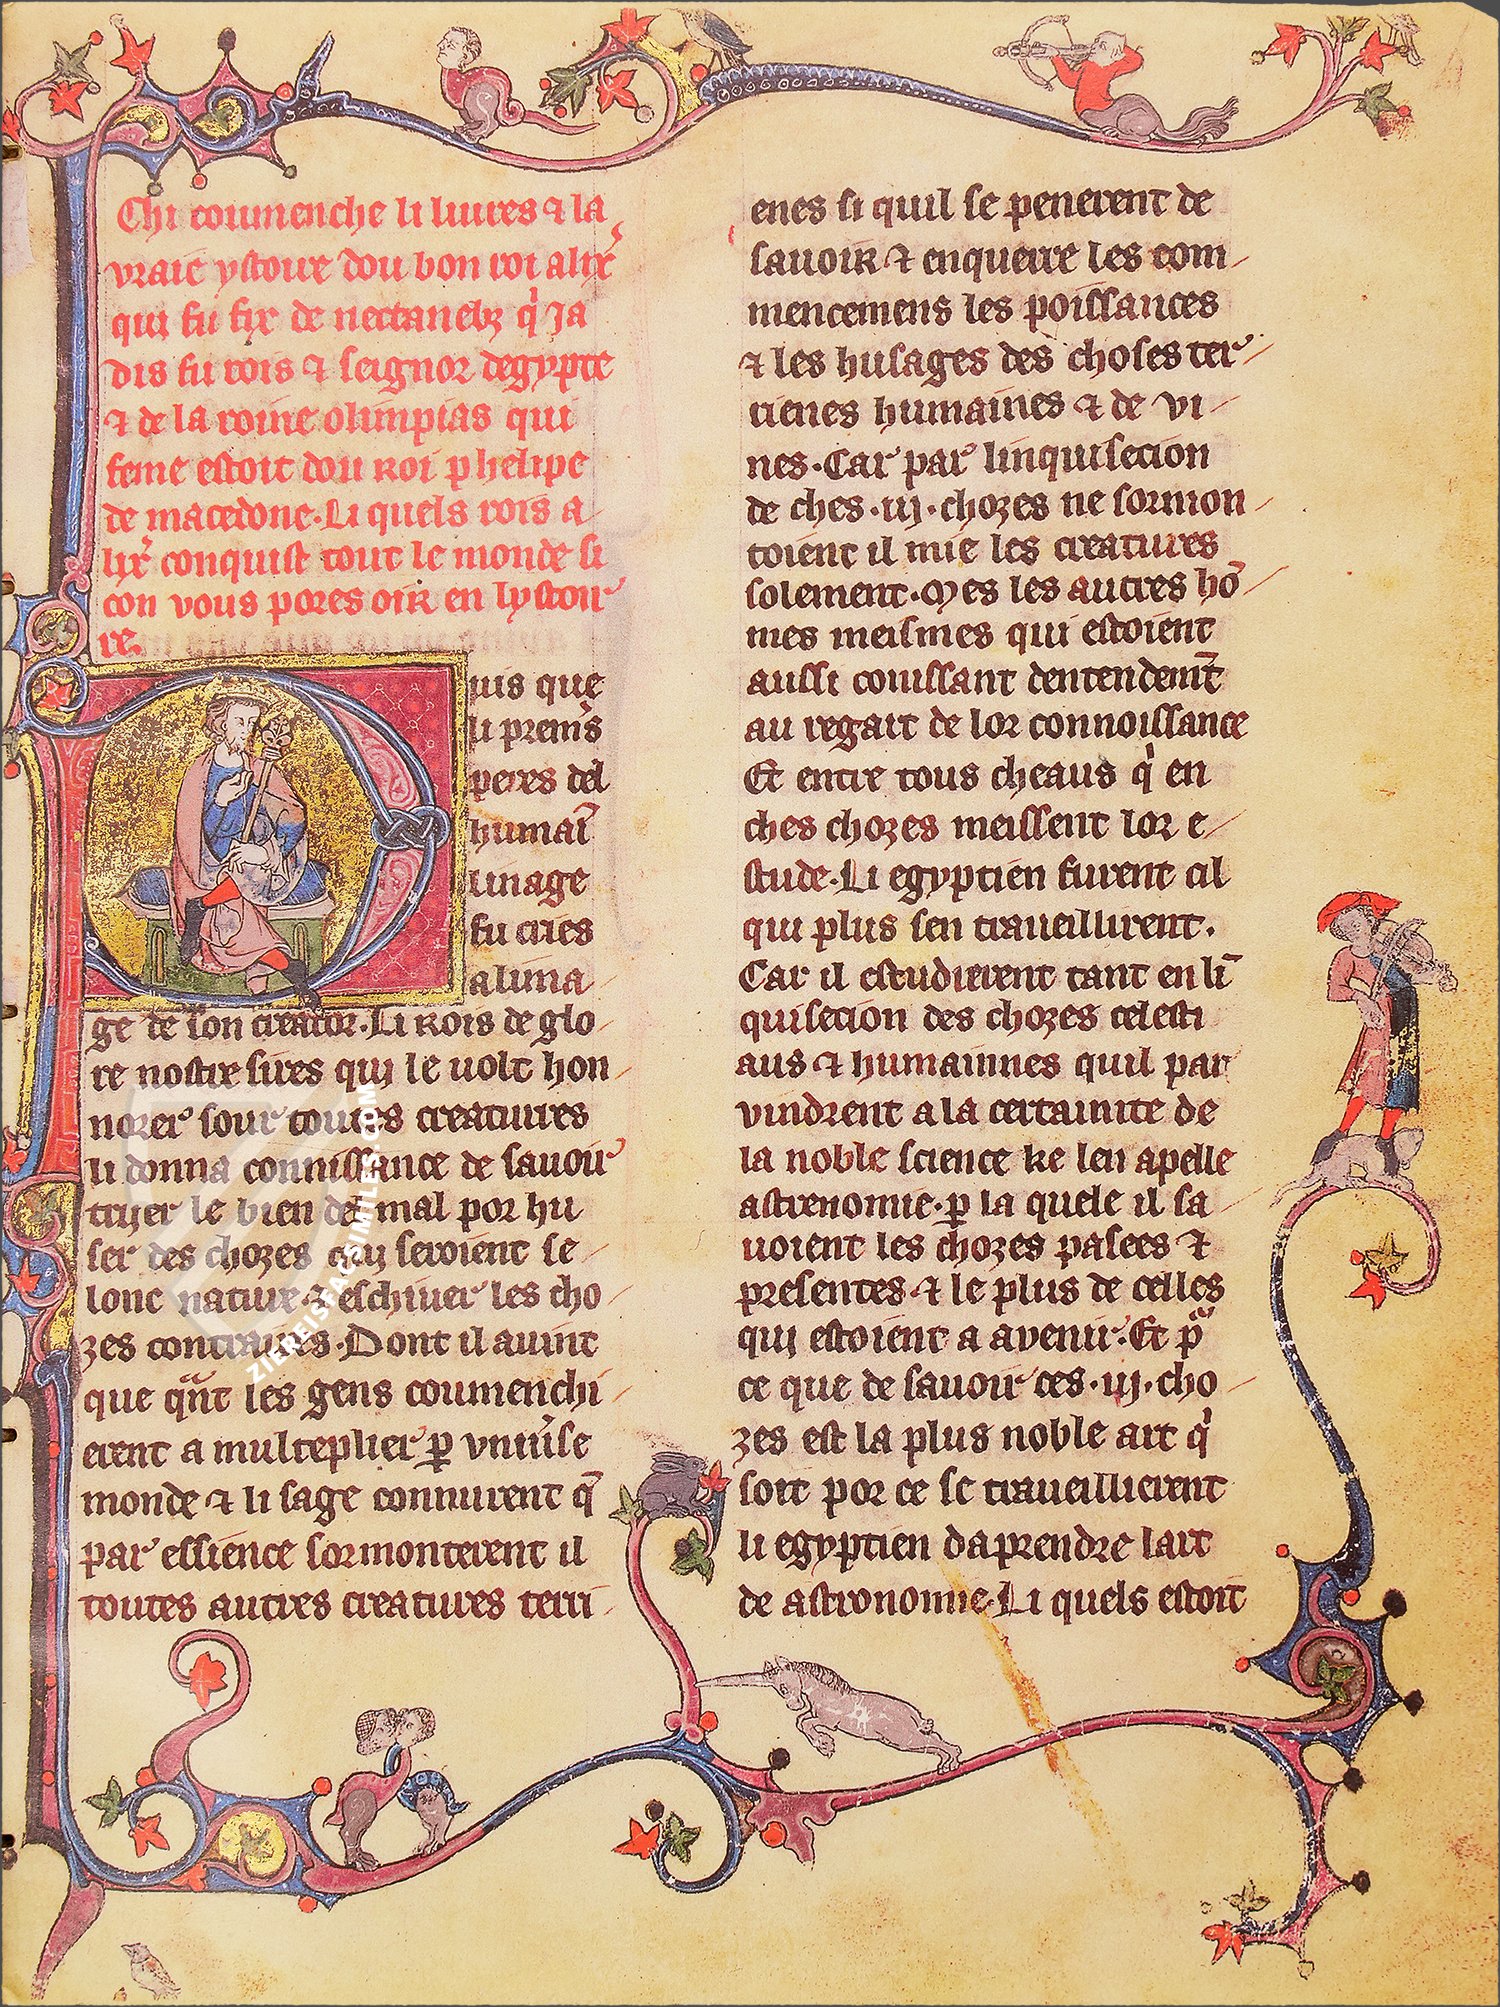 Chi coumenche li liures ⁊ la
vraie ystoire dou bon roi alix̃
qui fu fix de nectanebz q̇ Ja
dis fu rois ⁊ seignor degypte
⁊ de la roine olimpias qui
feme estoit dou roi phelipe
de macedone·Li quels rois a
lix̃ conquist tout le monde si
con vous pores oir en lystoi
re.
Puis que
li prem̃s
peres del
humaĩ
linage
fu cries
a lima
ge de son creator·Li rois de glo
re nostre sires qui le uolt hon
norer sour toutes creatures
li donna connissance de sauoir
trijer le bien del mal por hu
ser des chozes qui seroient se
lonc nature·⁊ eschiuer les cho
zes contraires·Dont il auint
que qᵃnt les gens coumenchi
erent a multeplier ꝑ vniũse
monde ⁊ li sage connurent q̃
par essience sormonterent il
toutes autres creatures terri
enes si quil se penerent de
sauoir ⁊ enquerre les com
mencemens les poissances
⁊ les husages des choses ter
rienes humaines ⁊ de vi
nes·Car par linquisecion
de ches·iij·chozes ne sormon
toient il mie les creatures
solement·Mes les autres hõ
mes meismes qui estoient
aussi conissant dentendem̃t
au regart de lor connoissance
Et entre tous cheaus q̇ en
ches chozes meissent lor e
stude·Li egyptien furent cil
qui plus sen traueillirent.
Car il estudierent tant en lĩ
quisecion des chozes celesti
aus ⁊ humainnes quil par
vindrent a la certainite de
la noble science ke len apelle
astrenomie·ꝑ la quele il sa
uoient les chozes pasees ⁊
presentes ⁊ le plus de celles
qui estoient a avenir·Et pᵃ
ce que de sauoir ces·iij·cho
zes est la plus noble art q̇
soit por ce se traueillierent
li egyptien daprendre lart
de astronomie·Li quels estoit
ZIEREISFACSIMILES.COM